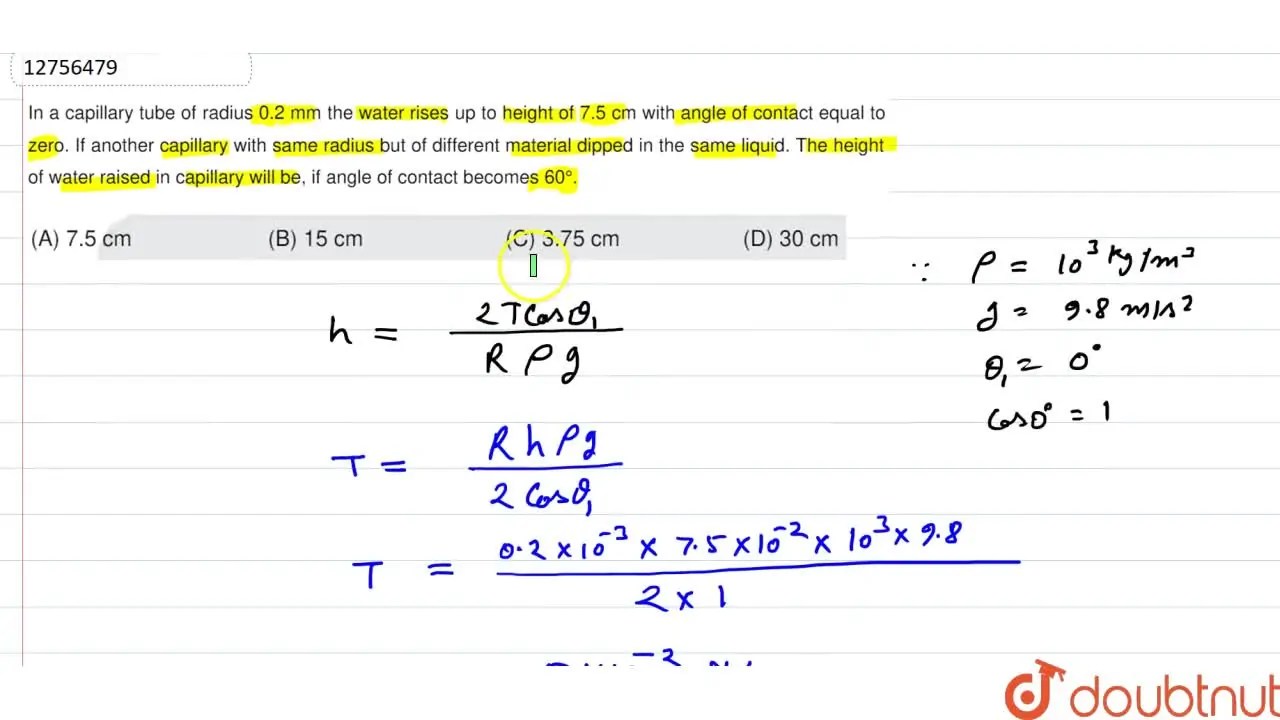 12756479
In a capillary tube of radius 0.2 mm the water rises up to height of 7.5 cm with angle of contact equal to
zero. If another capillary with same radius but of different material dipped in the same liquid. The height
of water raised in capillary will be, if angle of contact becomes 60°.
(A) 7.5 cm (B) 15 cm (C) 3.75 cm (D) 30 cm
∵ ρ = 10³ kg/m³
h = 2Tcosθ₁ / Rρg
g = 9.8 m/s²
θ₁ = 0°
cos0° = 1
T = Rhρg / 2cosθ₁
T = 0.2×10⁻³ × 7.5×10⁻² × 10³ × 9.8 / 2×1
doubtnut